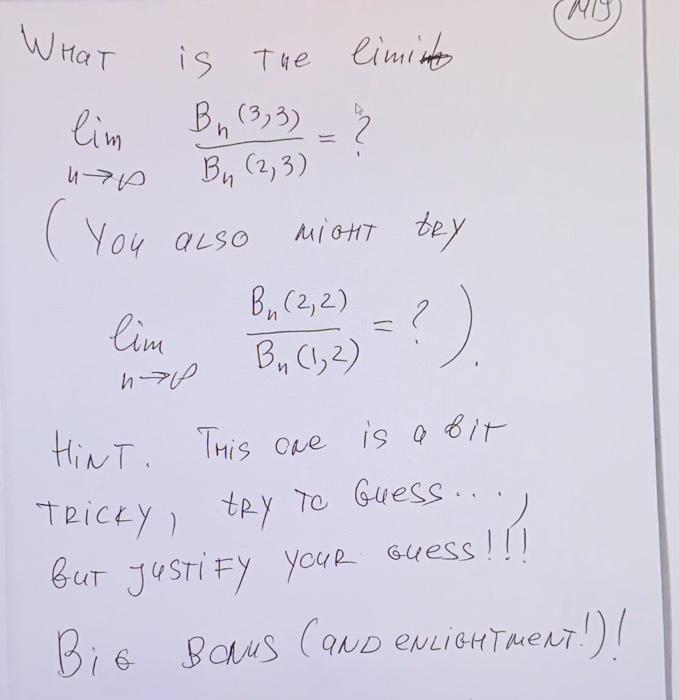 M19
WHAT is THE limit
lim n→∞ Bn(3,3) / Bn(2,3) = ?
(YOU ALSO MIGHT TRY
lim n→∞ Bn(2,2) / Bn(1,2) = ? ).
HINT. THIS ONE is a BIT
TRICKY, TRY TO GUESS....,
BUT JUSTIFY YOUR GUESS!!!
BIG BONUS (AND ENLIGHTMENT!)!